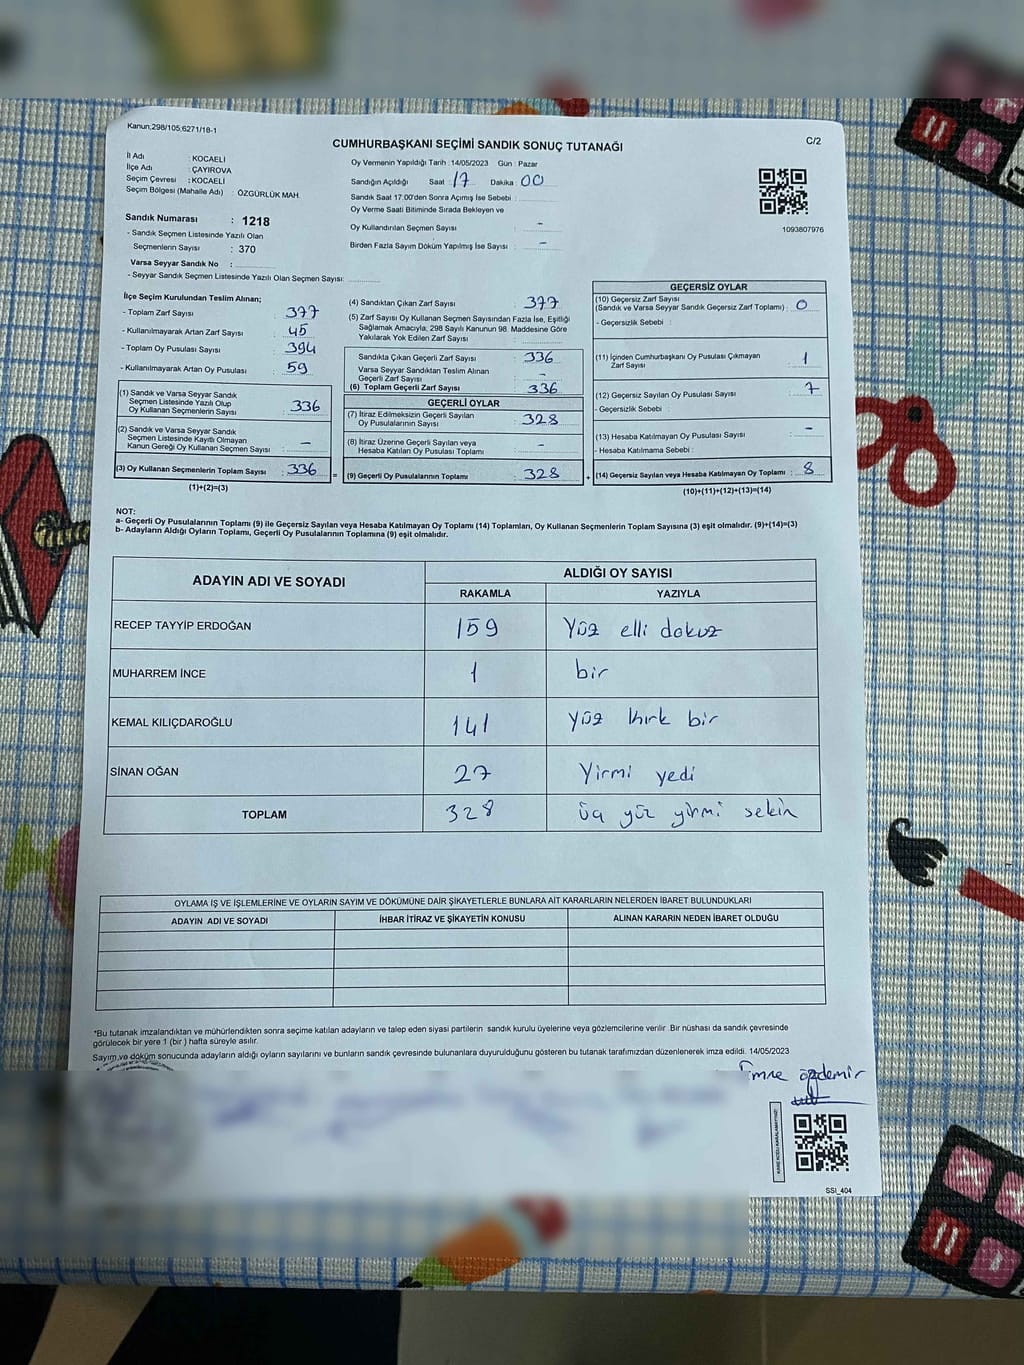 Kanun:298/105;6271/18-1
CUMHURBAŞKANI SEÇİMİ SANDIK SONUÇ TUTANAĞI
C/2
İl Adı : KOCAELİ
İlçe Adı : ÇAYIROVA
Seçim Çevresi : KOCAELİ
Seçim Bölgesi (Mahalle Adı) : ÖZGÜRLÜK MAH.
Sandık Numarası : 1218
- Sandık Seçmen Listesinde Yazılı Olan
Seçmenlerin Sayısı : 370
Varsa Seyyar Sandık No :
- Seyyar Sandık Seçmen Listesinde Yazılı Olan Seçmen Sayısı:
Oy Vermenin Yapıldığı Tarih : 14/05/2023 Gün : Pazar
Sandığın Açıldığı Saat : 17 Dakika : 00
Sandık Saat 17:00'den Sonra Açımış İse Sebebi :
Oy Verme Saati Bitiminde Sırada Bekleyen ve
Oy Kullandırılan Seçmen Sayısı : -
Birden Fazla Sayım Döküm Yapılmış İse Sayısı : -
1093807976
İlçe Seçim Kurulundan Teslim Alınan;
- Toplam Zarf Sayısı : 377
- Kullanılmayarak Artan Zarf Sayısı : 45
- Toplam Oy Pusulası Sayısı : 394
- Kullanılmayarak Artan Oy Pusulası : 59
(1) Sandık ve Varsa Seyyar Sandık
Seçmen Listesinde Yazılı Olup
Oy Kullanan Seçmenlerin Sayısı : 336
(2) Sandık ve Varsa Seyyar Sandık
Seçmen Listesinde Kayıtlı Olmayan
Kanun Gereği Oy Kullanan Seçmen Sayısı : -
(3) Oy Kullanan Seçmenlerin Toplam Sayısı : 336 =
(1)+(2)=(3)
(4) Sandıktan Çıkan Zarf Sayısı : 377
(5) Zarf Sayısı Oy Kullanan Seçmen Sayısından Fazla İse, Eşitliği
Sağlamak Amacıyla, 298 Sayılı Kanunun 98. Maddesine Göre
Yakılarak Yok Edilen Zarf Sayısı :
Sandıkta Çıkan Geçerli Zarf Sayısı : 336
Varsa Seyyar Sandıktan Teslim Alınan
Geçerli Zarf Sayısı : -
(6) Toplam Geçerli Zarf Sayısı : 336
GEÇERLİ OYLAR
(7) İtiraz Edilmeksizin Geçerli Sayılan
Oy Pusulalarının Sayısı : 328
(8) İtiraz Üzerine Geçerli Sayılan veya
Hesaba Katılan Oy Pusulası Toplamı : -
(9) Geçerli Oy Pusulalarının Toplamı : 328 +
GEÇERSİZ OYLAR
(10) Geçersiz Zarf Sayısı
(Sandık ve Varsa Seyyar Sandık Geçersiz Zarf Toplamı) : 0
- Geçersizlik Sebebi :
(11) İçinden Cumhurbaşkanı Oy Pusulası Çıkmayan
Zarf Sayısı : 1
(12) Geçersiz Sayılan Oy Pusulası Sayısı : 7
- Geçersizlik Sebebi :
(13) Hesaba Katılmayan Oy Pusulası Sayısı : -
- Hesaba Katılmama Sebebi :
(14) Geçersiz Sayılan veya Hesaba Katılmayan Oy Toplamı : 8
(10)+(11)+(12)+(13)=(14)
NOT:
a- Geçerli Oy Pusulalarının Toplamı (9) ile Geçersiz Sayılan veya Hesaba Katılmayan Oy Toplamı (14) Toplamları, Oy Kullanan Seçmenlerin Toplam Sayısına (3) eşit olmalıdır. (9)+(14)=(3)
b- Adayların Aldığı Oyların Toplamı, Geçerli Oy Pusulalarının Toplamına (9) eşit olmalıdır.
ADAYIN ADI VE SOYADI ALDIĞI OY SAYISI
RAKAMLA YAZIYLA
RECEP TAYYİP ERDOĞAN 159 Yüz elli dokuz
MUHARREM İNCE 1 bir
KEMAL KILIÇDAROĞLU 141 yüz kırk bir
SİNAN OĞAN 27 Yirmi yedi
TOPLAM 328 üç yüz yirmi sekiz
OYLAMA İŞ VE İŞLEMLERİNE VE OYLARIN SAYIM VE DÖKÜMÜNE DAİR ŞİKAYETLERLE BUNLARA AİT KARARLARIN NELERDEN İBARET BULUNDUKLARI
ADAYIN ADI VE SOYADI İHBAR İTİRAZ VE ŞİKAYETİN KONUSU ALINAN KARARIN NEDEN İBARET OLDUĞU
*Bu tutanak imzalandıktan ve mühürlendikten sonra seçime katılan adayların ve talep eden siyasi partilerin sandık kurulu üyelerine veya gözlemcilerine verilir .Bir nüshası da sandık çevresinde
görülecek bir yere 1 (bir ) hafta süreyle asılır.
Sayım ve döküm sonucunda adayların aldığı oyların sayılarını ve bunların sandık çevresinde bulunanlara duyurulduğunu gösteren bu tutanak tarafımızdan düzenlenerek imza edildi. 14/05/2023
Emre özdemir
SSI_404